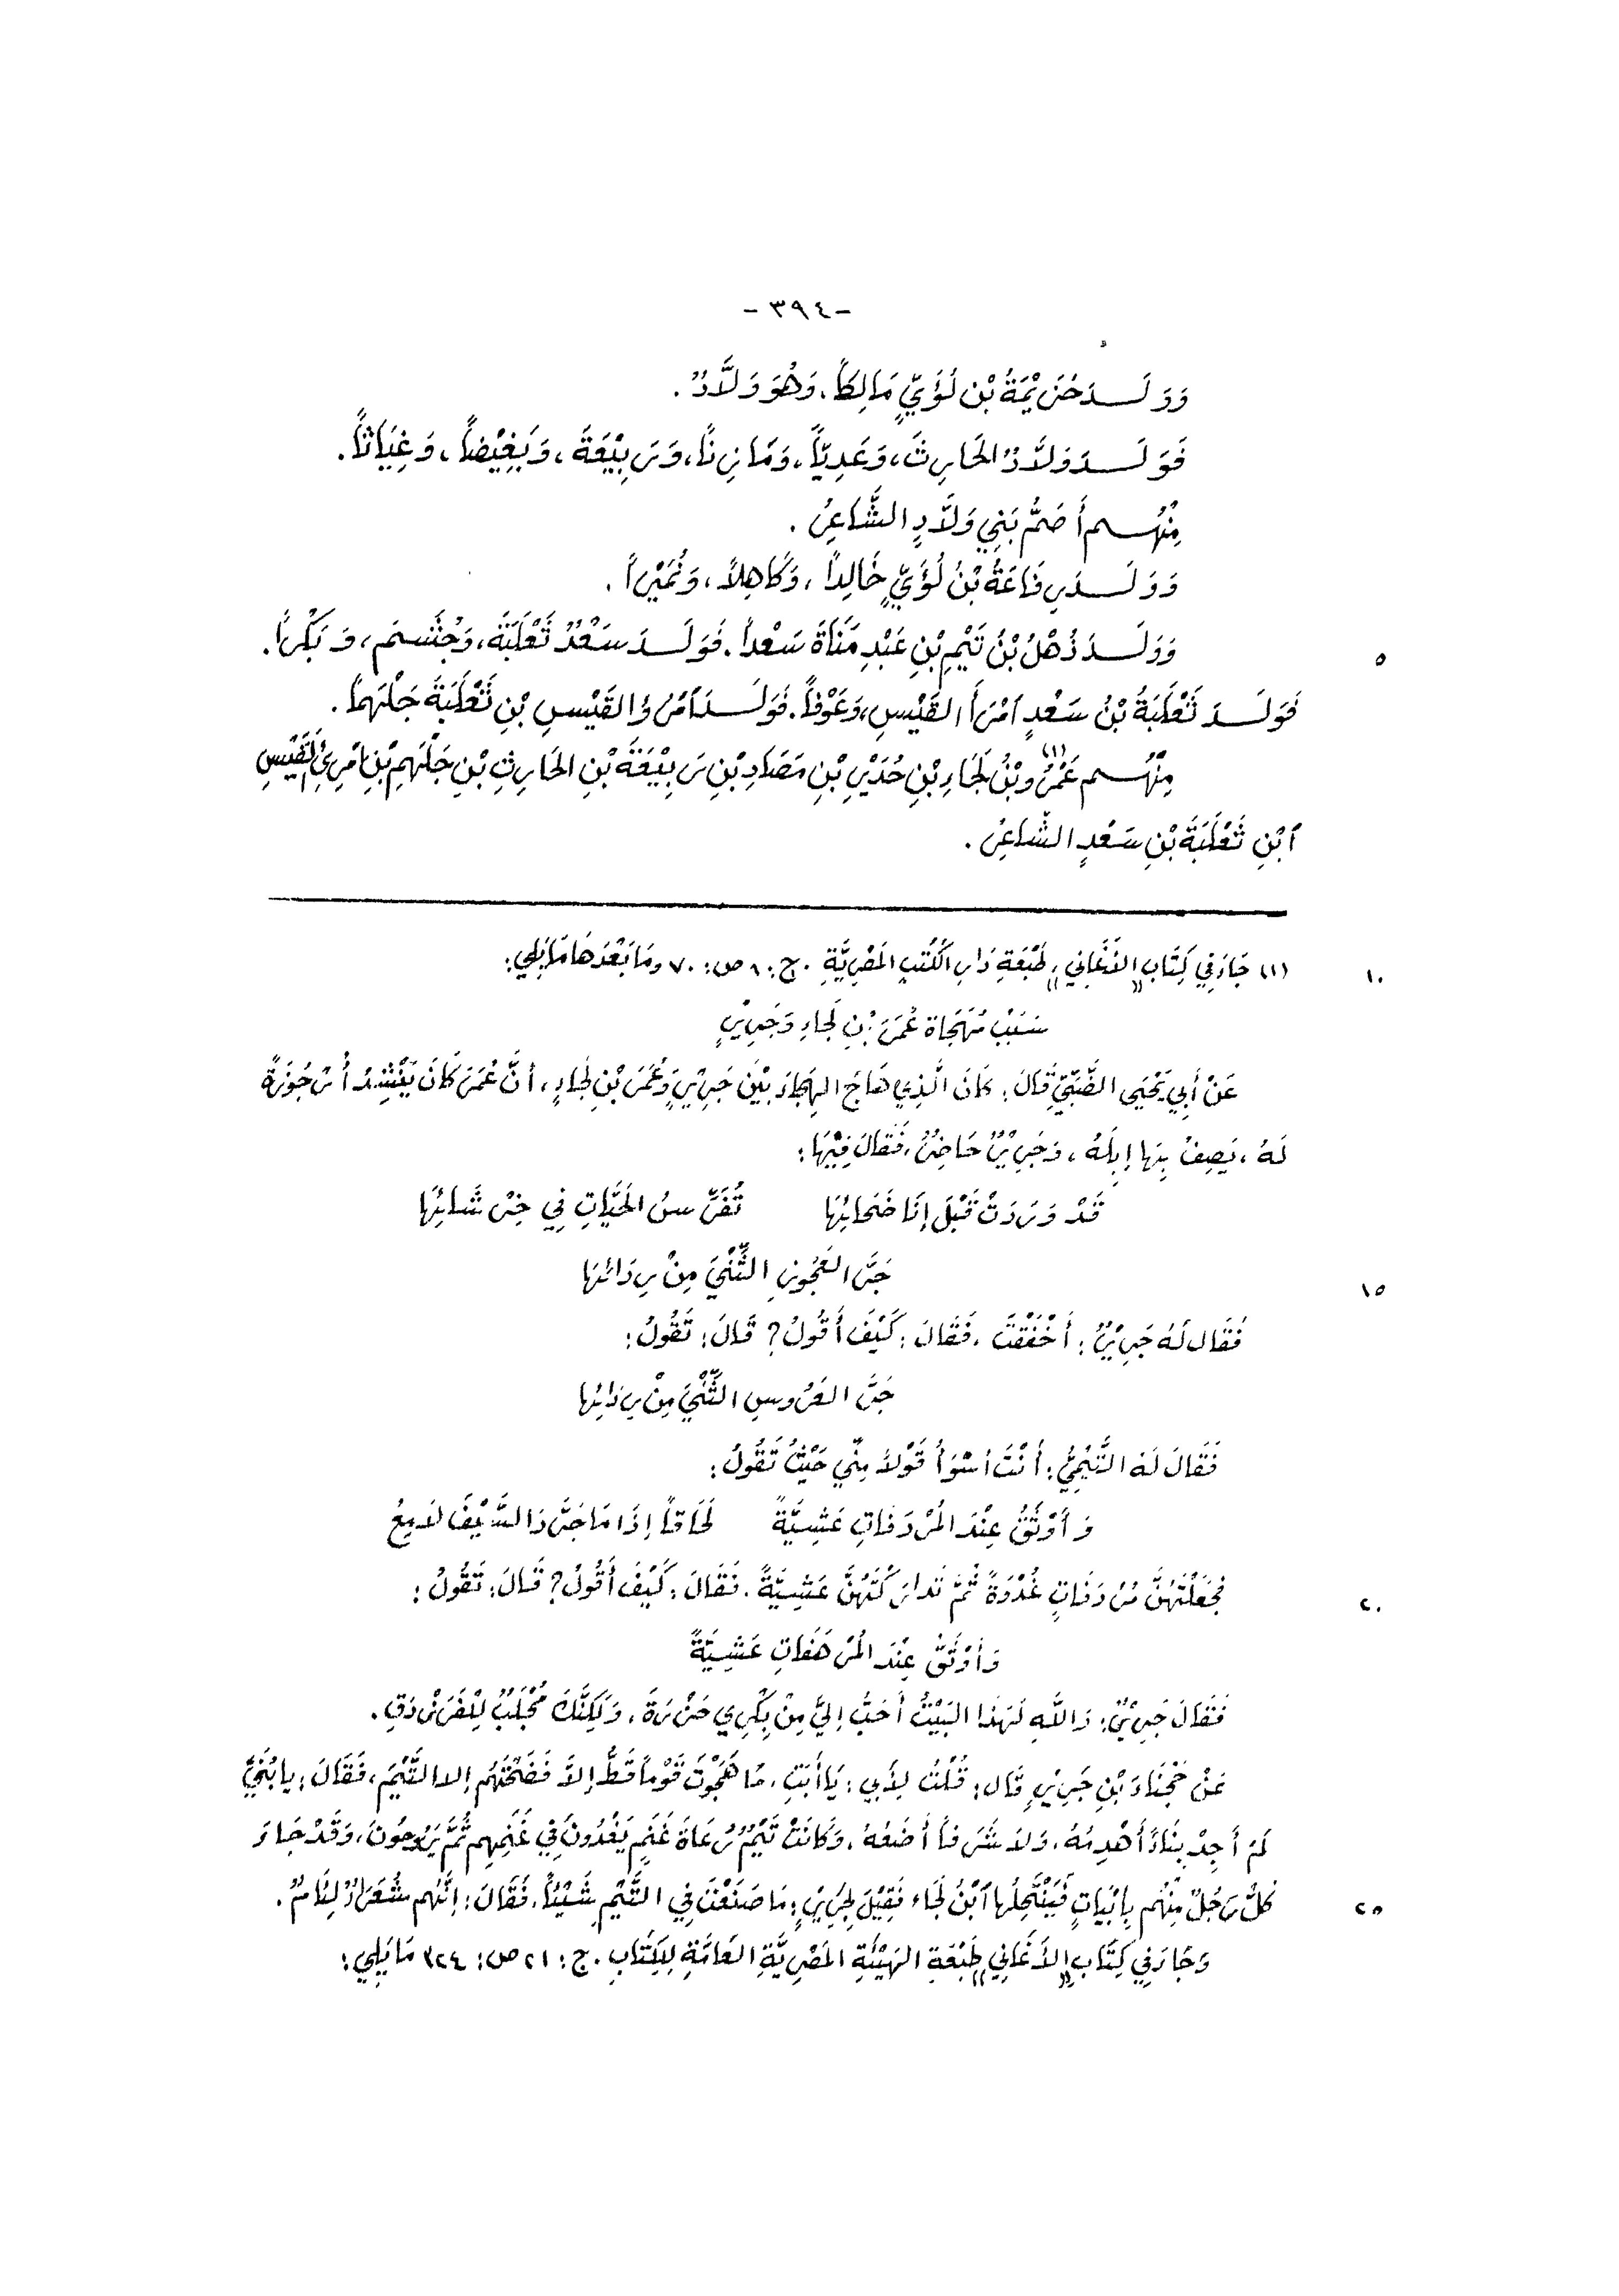 -٣٩٤-
وَوَلَـدَ خُزَيْمَةُ بْنُ لُؤَيٍّ مَالِكاً، وَهُوَ وَلَّادُ.
فَوَلَـدَ وَلَّادُ الحَارِثَ، وَعَدِيّاً، وَمَازِناً، وَرَبِيْعَةَ، وَبَغِيْضاً، وَغِيَاثاً.
مِنْهُـم أَصَمُّ بَنِي وَلَّادٍ الشَّاعِرُ.
وَوَلَـدَ رِفَاعَةُ بْنُ لُؤَيٍّ خَالِداً، وَكَاهِلاً، وَنُمَيْراً.
٥ وَوَلَـدَ ذُهْلُ بْنُ تَيْمِ بْنِ عَبْدِ مَنَاةَ سَعْداً. فَوَلَـدَ سَعْدُ ثَعْلَبَةَ، وَجُشَمَ، وَبَكْراً.
فَوَلَـدَ ثَعْلَبَةُ بْنُ سَعْدٍ ٱمْرَأَ القَيْسِ، وَعَوْفاً. فَوَلَـدَ ٱمْرُؤُ القَيْسِ بْنِ ثَعْلَبَةَ جَلْهَماً.
مِنْهُـم عَمْرُو(١) بْنُ لَجَاءِ بْنِ حُدَيْرِ بْنِ مَصَادِ بْنِ رَبِيْعَةَ بْنِ الحَارِثِ بْنِ جَلْهَمِ بْنِ ٱمْرِئِ القَيْسِ
ٱبْنِ ثَعْلَبَةَ بْنِ سَعْدٍ الشَّاعِرُ.
١٠ (١) جَاءَ فِي كِتَابِ «الأَغَانِي» طَبْعَةِ دَارِ الكُتُبِ المَصْرِيَّةِ. ج: ٨ ص: ٧٠ ومَا بَعْدَهَا مَا يَلِي:
سَبَبُ مُهَجَاةِ عُمَرَ بْنِ لَجَاءِ وَجَرِيْرٍ
عَنْ أَبِي يَحْيَى الضَّبِّيِّ قَالَ: كَانَ الَّذِي هَاجَ الهِجَاءَ بَيْنَ جَرِيْرٍ وَعُمَرَ بْنِ لَجَاءٍ، أنَّ عُمَرَ كَانَ يُنْشِدُ أُرْجُوزَةً
لَهُ، يَصِفُ بِهَا إِبِلَهُ، وَجَرِيْرٌ حَاضِرٌ، فَقَالَ فِيْهَا:
قَدْ وَرَدَتْ قَبْلَ إِنَا ضَحَائِهَا تُفَرِّسُ الحَيَّاتِ فِي خِرْشَائِهَا
١٥ جَرَّ العَجُوزِ الثِّنْيَ مِنْ رِدَائهَا
فَقَالَ لَهُ جَرِيْرٌ: أَخْفَقْتَ، فَقَالَ: كَيْفَ أَقُولُ؟ قَالَ: تَقُولُ:
جَرَّ العَرُوسِ الثِّنْيَ مِنْ رِدَائِهَا
فَقَالَ لَهُ التَّيْمِيُّ: أَنْتَ أسْوَأُ قَوْلاً مِنِّي حَيْثُ تَقُولُ:
وَأَوْثَقُ عِنْدَ المُرْدَفَاتِ عَشِيَّةً لَحَاقاً إِذَا مَا جَرَّدَ السَّيْفَ لَامِعُ
٢٠ فَجَعَلْتَهُنَّ مُرْدَفَاتٍ غُدْوَةً ثُمَّ تَدَارَكْتَهُنَّ عَشِيَّةً. فَقَالَ: كَيْفَ أَقُولُ؟ قَالَ: تَقُولُ:
وَأَوْثَقُ عِنْدَ المُرْهَفَاتِ عَشِيَّةً
فَقَالَ جَرِيْرٌ: وَاللَّهِ لَهَذَا البَيْتُ أَحَبُّ إِلَيَّ مِنْ بِكْرِي حَزْرَةَ، وَلَكِنَّكَ مُجْلِبٌ لِلْفَرَزْدَقِ.
عَنْ حَجْنَاءَ بْنِ جَرِيْرٍ قَالَ: قُلْتُ لِأَبِي: يَا أَبَتِ، مَا هَجَوْتَ قَوْماً قَطُّ إِلاَّ فَضَحْتَهُم إلا التَّيْمَ، فَقَالَ: يا بُنَيَّ
لَمْ أَجِدْ بِنَاءً أَهْدِمُهُ، وَلاَ شَرَفاً أَضَعُهُ، وَكَانَتْ تَيْمُ رُعَاةَ غَنَمٍ يَغْدُونَ فِي غَنَمِهِم ثُمَّ يَرُوحُونَ، وَقَدْ جَاءَ
٢٥ كُلُّ رَجُلٍ مِنْهُم بِأَبْيَاتٍ فَيَنْتَحِلُها ٱبْنُ لَجَاء فَقِيْلَ لِجَرِيْرٍ: مَا صَنَعْتَ فِي التَّيْمِ شَيْئاً، فَقَالَ: إِنَّهُم شُعَرَاءُ لِئَامٌ.
وَجَاءَ فِي كِتَابِ «الأَغَانِي» طَبْعَةِ الهَيْئَةِ المَصْرِيَّةِ العَامَّةِ لِلكِتَابِ. ج: ٢١ ص: ٣٢٤ مَا يَلِي: